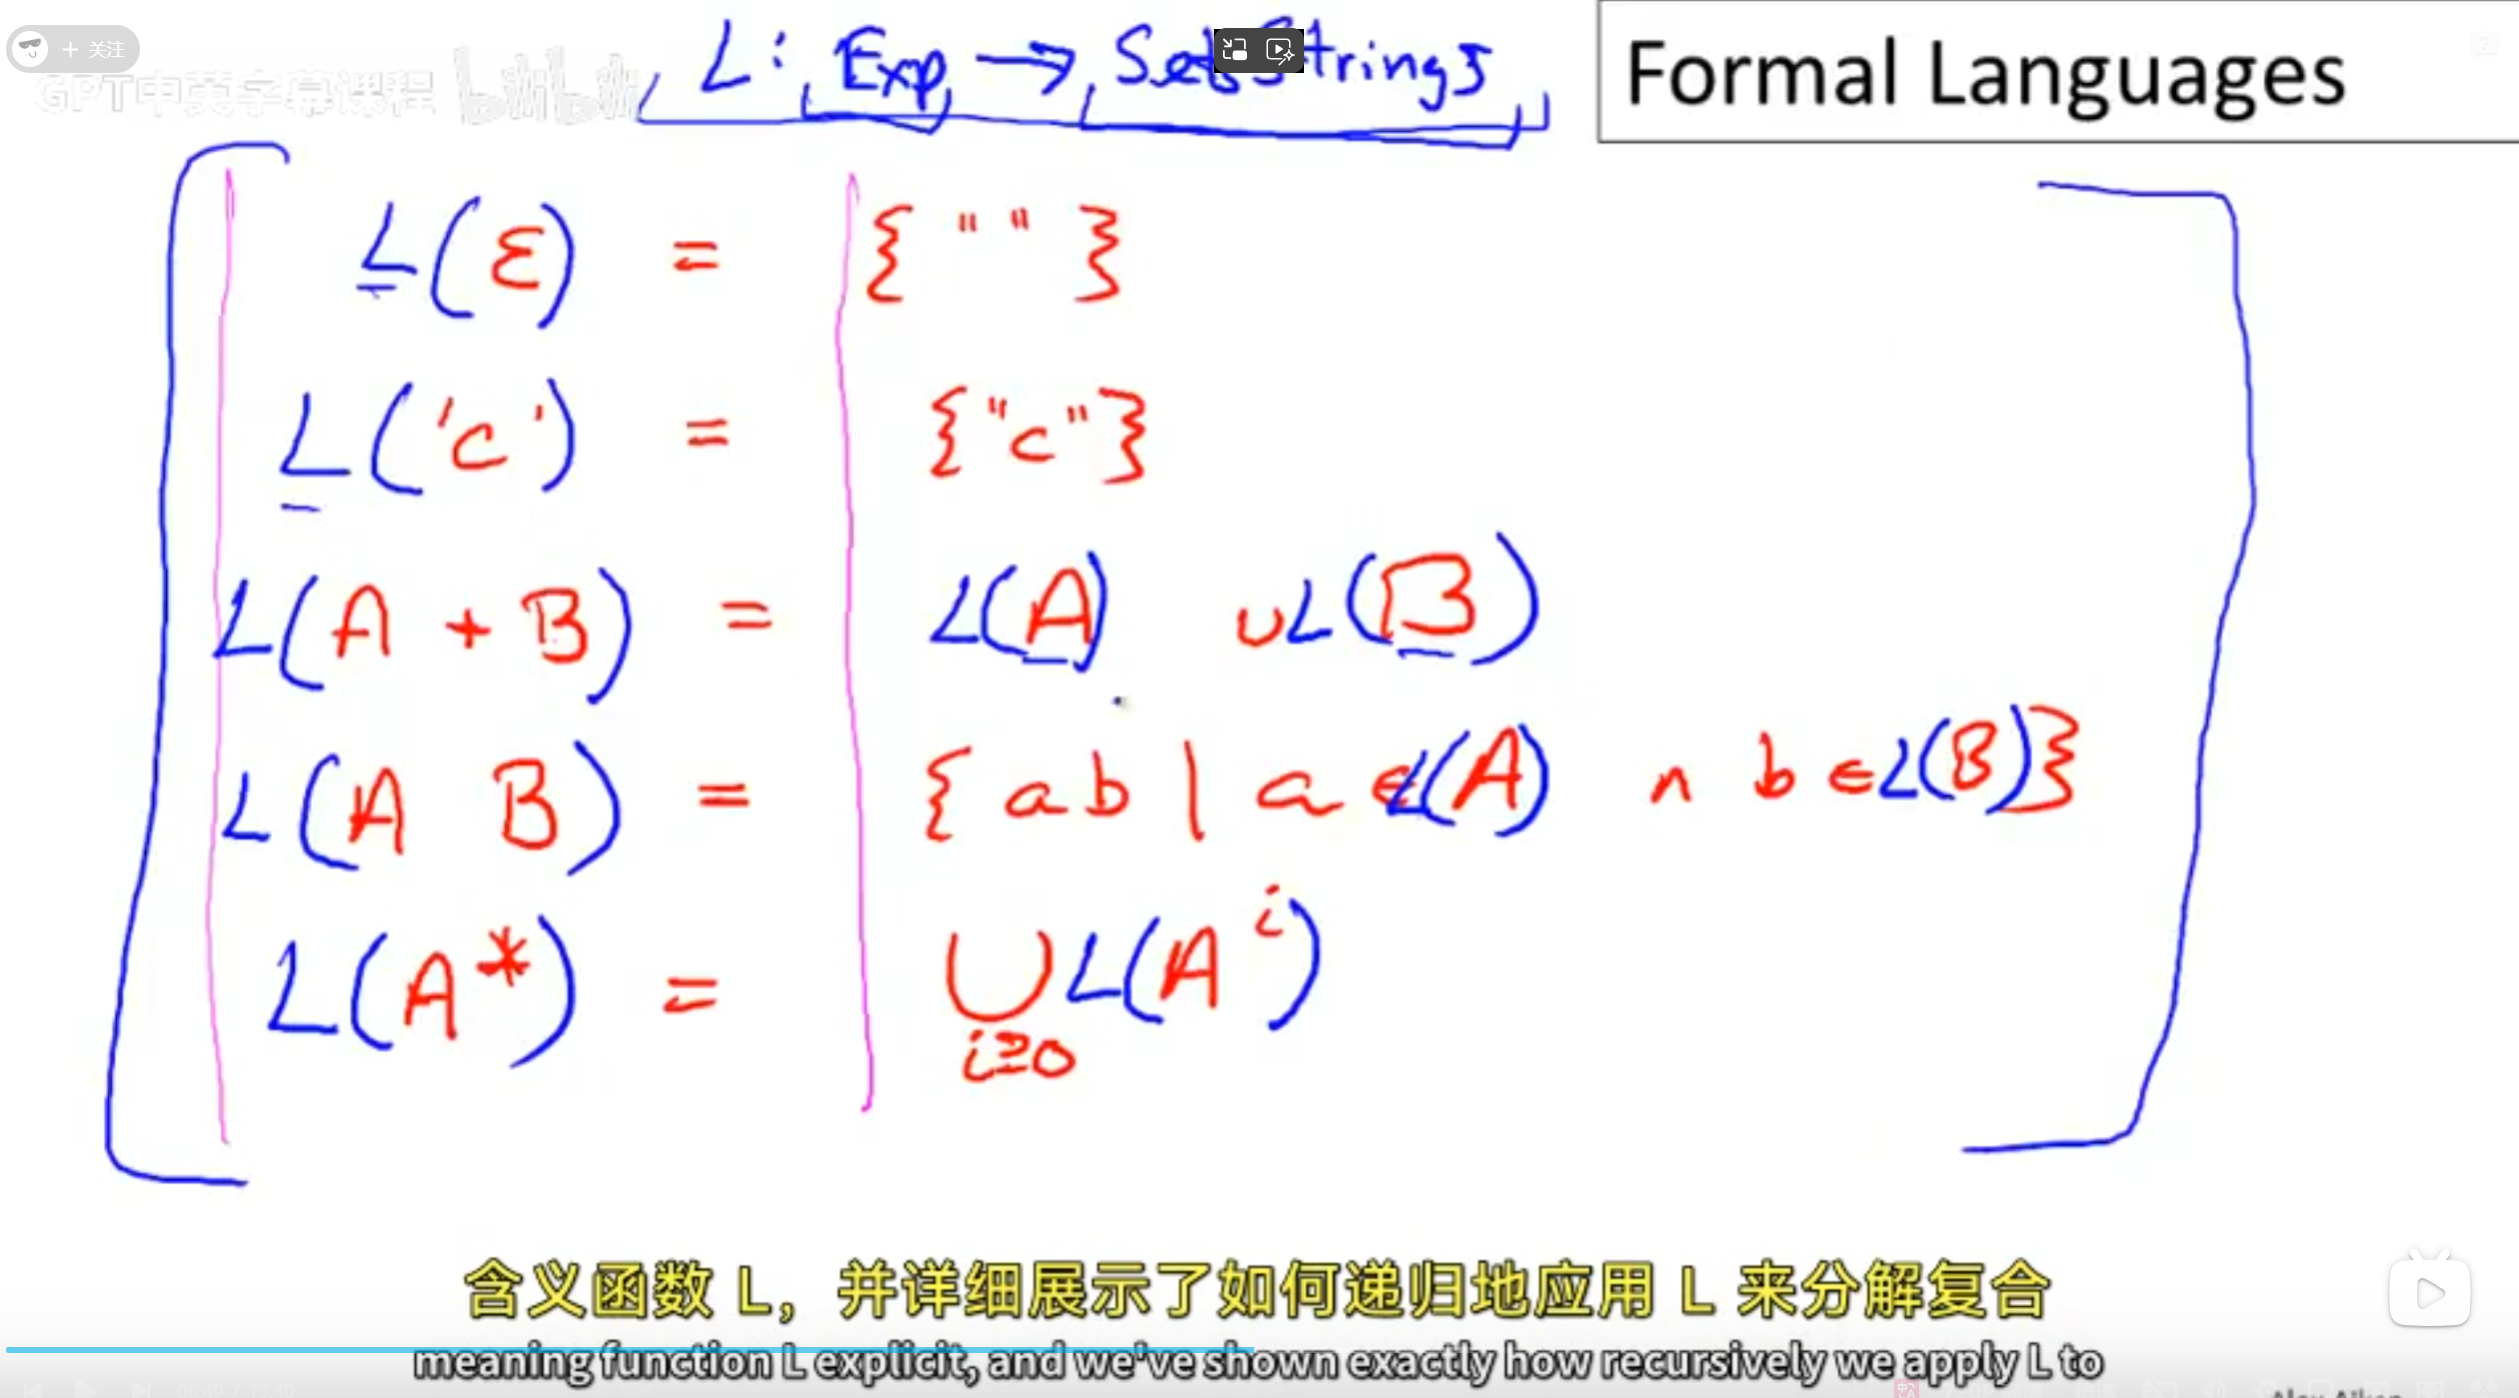 + 关注
GPT中英字幕课程 bilibili
L: Exp → Sets Strings
Formal Languages
L(ε) = {""}
L('c') = {"c"}
L(A + B) = L(A) ∪ L(B)
L(A B) = {ab | a ∈ L(A) ∧ b ∈ L(B)}
L(A*) = ⋃ L(Aⁱ)
i≥0
含义函数 L，并详细展示了如何递归地应用 L 来分解复合
meaning function L explicit, and we've shown exactly how recursively we apply L to